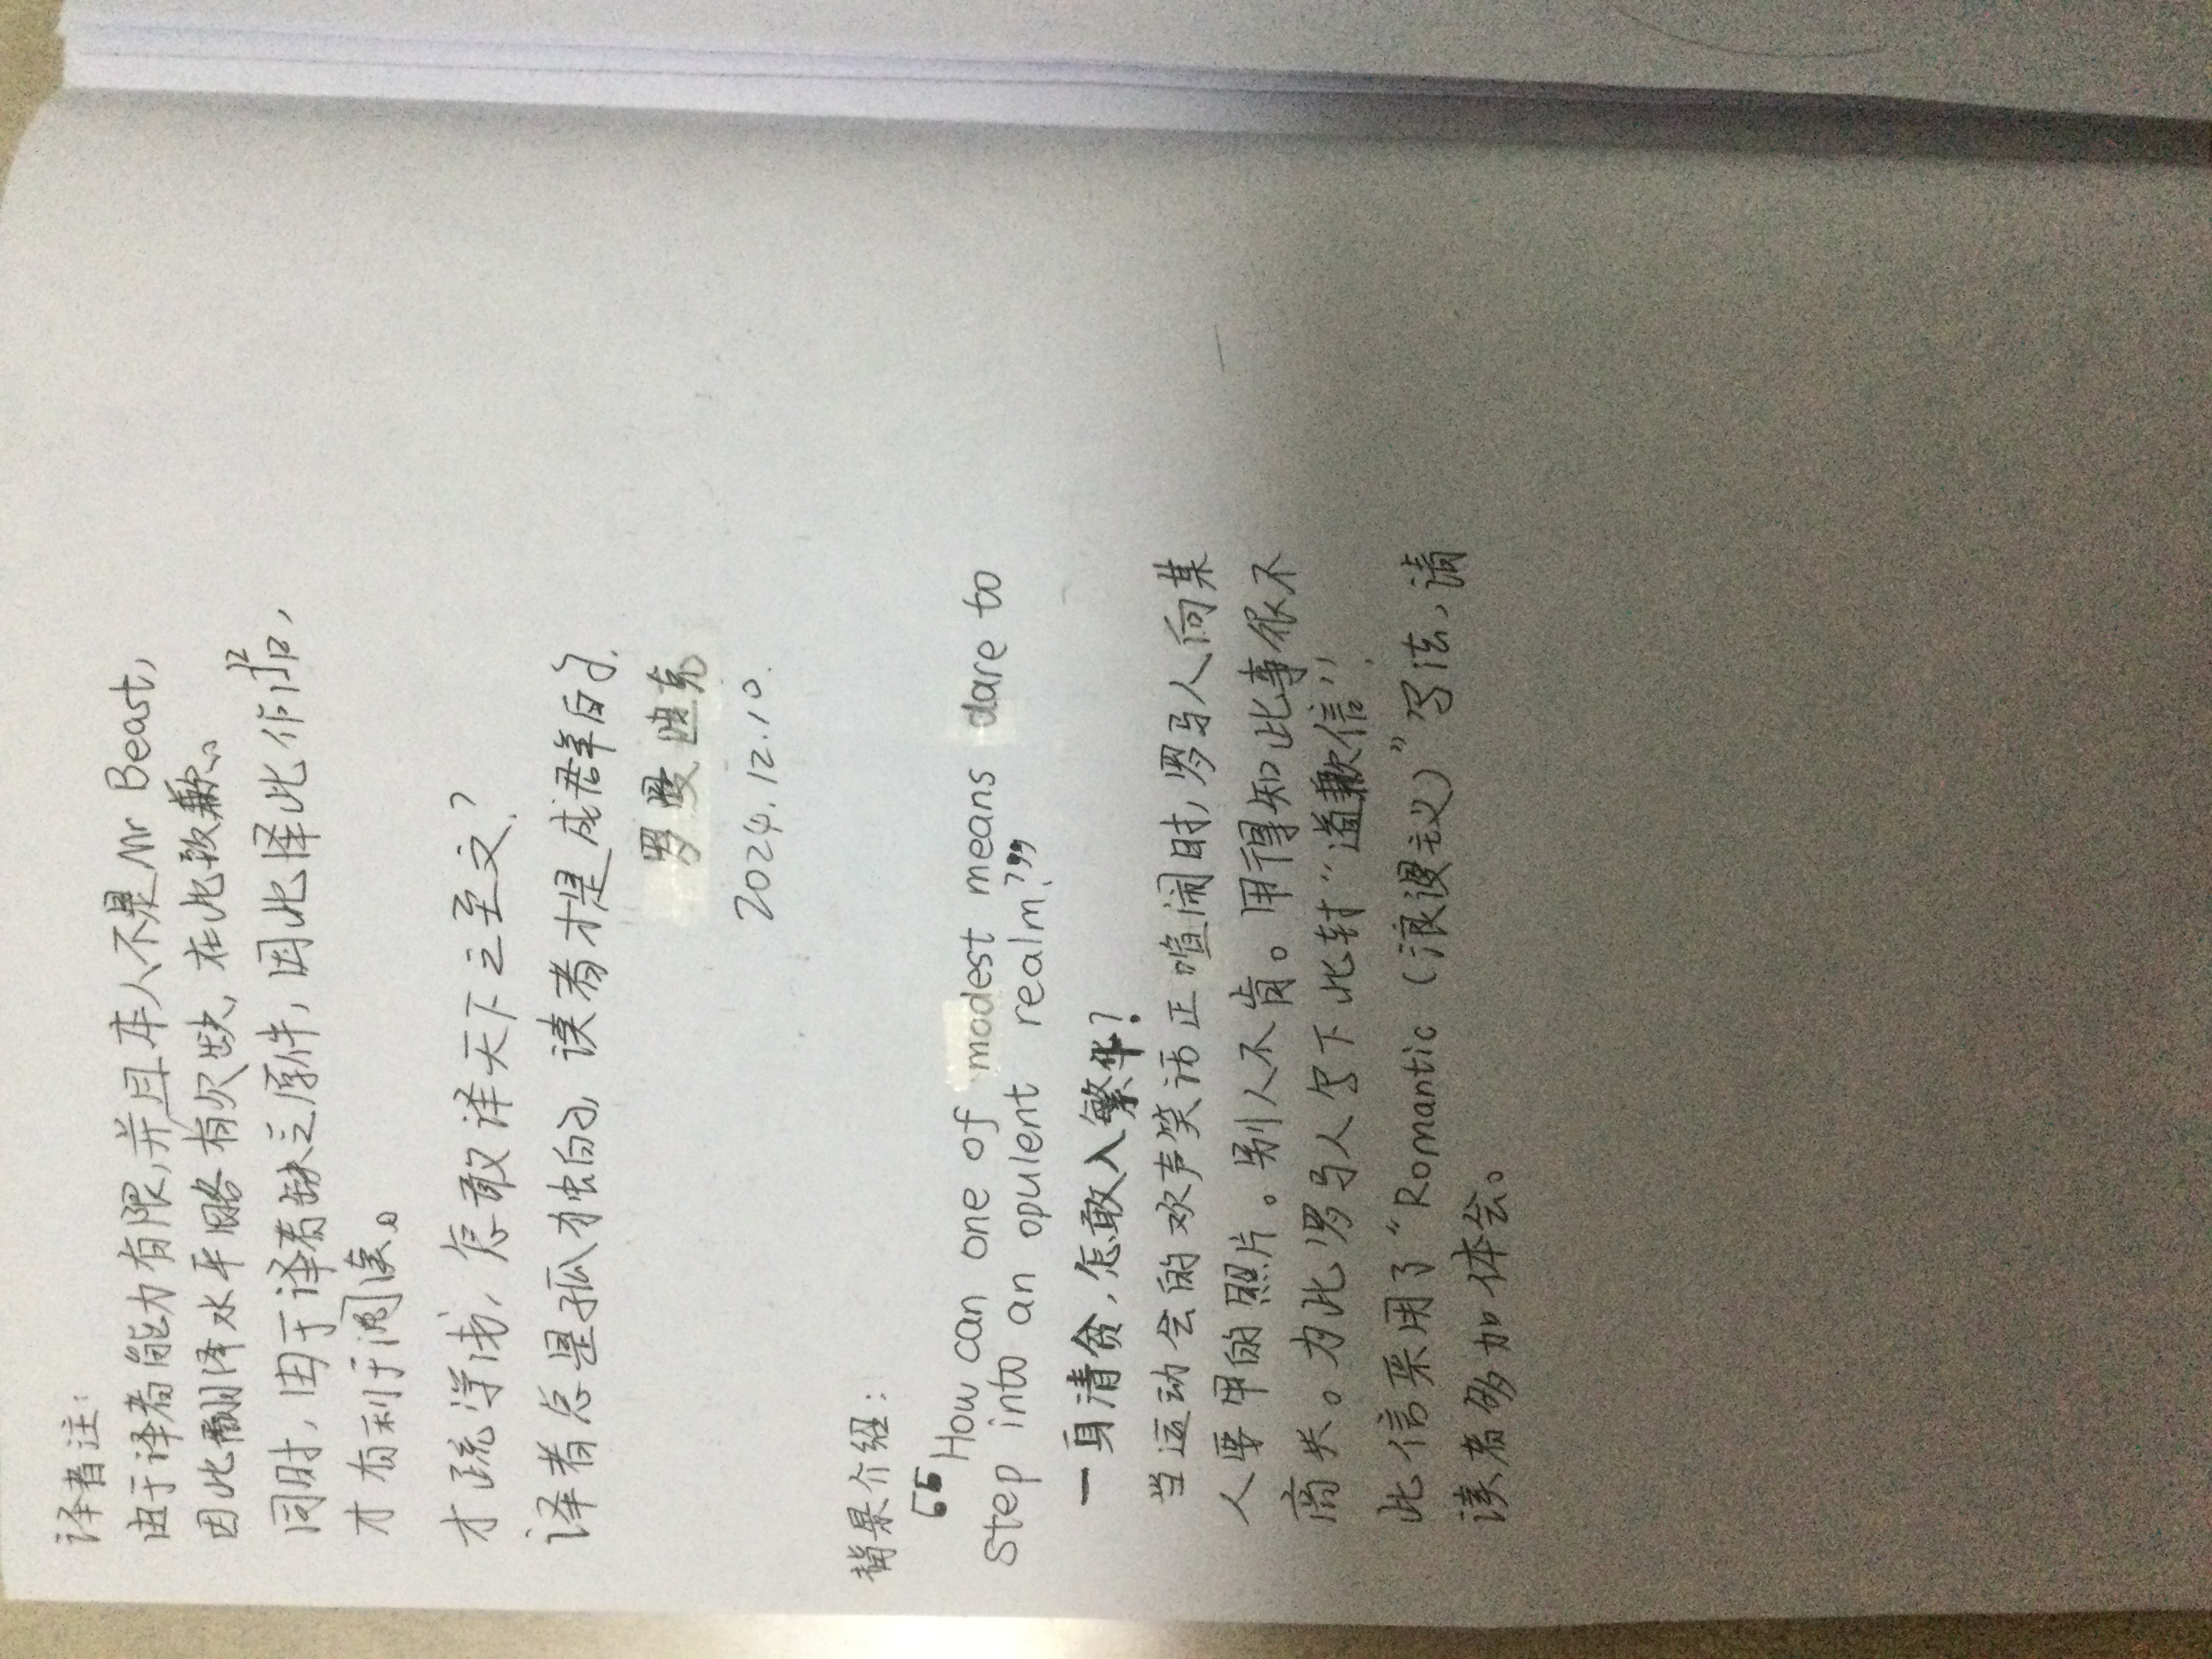 译者注:
由于译者能力有限,并且本人不是Mr Beast,
因此翻译水平略有欠缺,在此致歉。
同时,由于译者缺乏原件,因此译此作品,
才有利于阅读。
才疏学浅,怎敢译天下之至文?
译者总是孤独的,读者才是成群的.
罗曼迪克
2024.12.10.
背景介绍:
“How can one of modest means dare to
step into an opulent realm?”
一身清贫,怎敢入繁华?
当运动会的欢声笑语正喧闹时,罗马人向某
人要甲的照片。别人不肯。甲得知此事很不
高兴。为此罗马人写下此封“道歉信”!
此信采用了“Romantic(浪漫主义)”写法,请
读者多加体会。